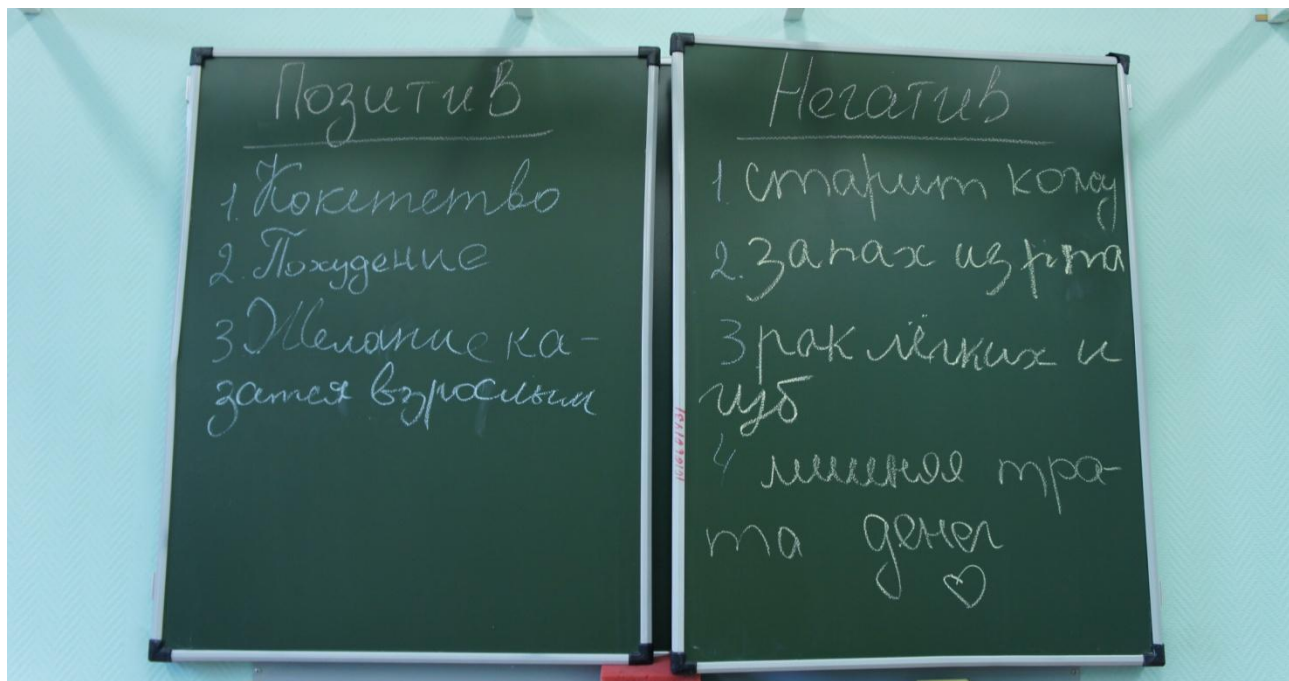 Позитив
1. Кокетство
2. Похудение
3 Желание ка-
затся взрослым
Негатив
1 старит кожу
2. запах из рта
3 рак лёгких и
губ
4 лишняя тра-
та денег